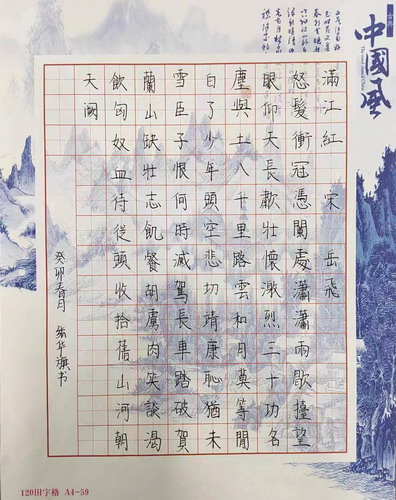 中國風
滿江紅 宋 岳飛
怒髮衝冠憑闌處瀟瀟雨歇擡望
眼仰天長歗壯懷激烈三十功名
塵與土八千里路雲和月莫等閒
白了少年頭空悲切靖康恥猶未
雪臣子恨何時滅駕長車踏破賀
蘭山缺壯志飢餐胡虜肉笑談渴
飲匈奴血待從頭收拾舊山河朝
天闕
癸卯春月
书
120田字格 A4-59